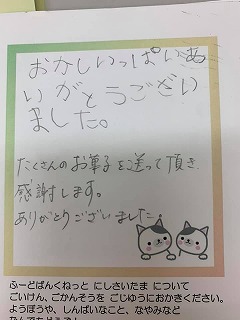 おかしいっぱいあ
いがとうござい
ました。
たくさんのお菓子を送って頂き
感謝します。
ありがとうございました。
ふーどばんくねっと にしさいたま について
ごいけん、ごかんそうを ごじゆうにおかきください。
ようぼうや、しんぱいなこと、なやみなど